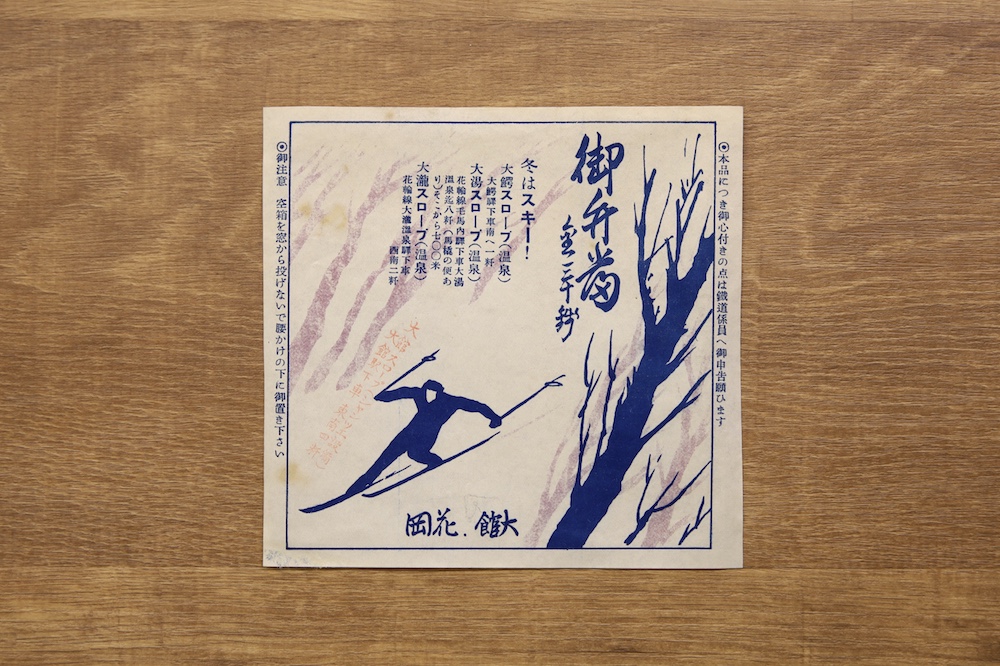 ◉本品につき御心付きの点は鐵道係員へ御申告願ひます
御弁当
金三十錢
冬はスキー!
大鰐スロープ(温泉)
大鰐驛下車南へ一粁
大湯スロープ(温泉)
花輪線毛馬内驛下車大湯
温泉迄八粁(馬橇の便あ
り)そこから七〇〇米
大瀧スロープ(温泉)
花輪線大瀧温泉驛下車
西南二粁
大館 花岡
◉御注意 空箱を窓から投げないで腰かけの下に御置き下さい